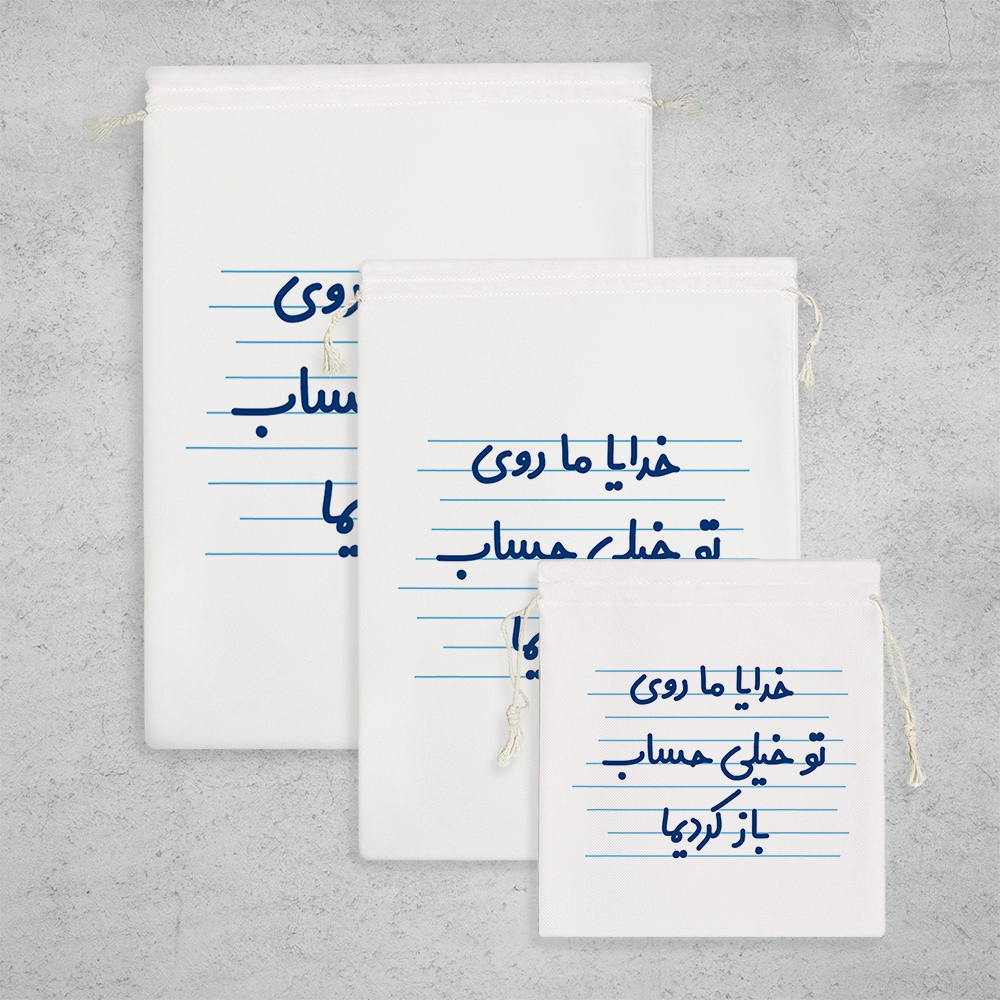 روی
حساب
یما
خدایا ما روی
تو خیلی حساب
یما
خدایا ما روی
تو خیلی حساب
باز کردیما